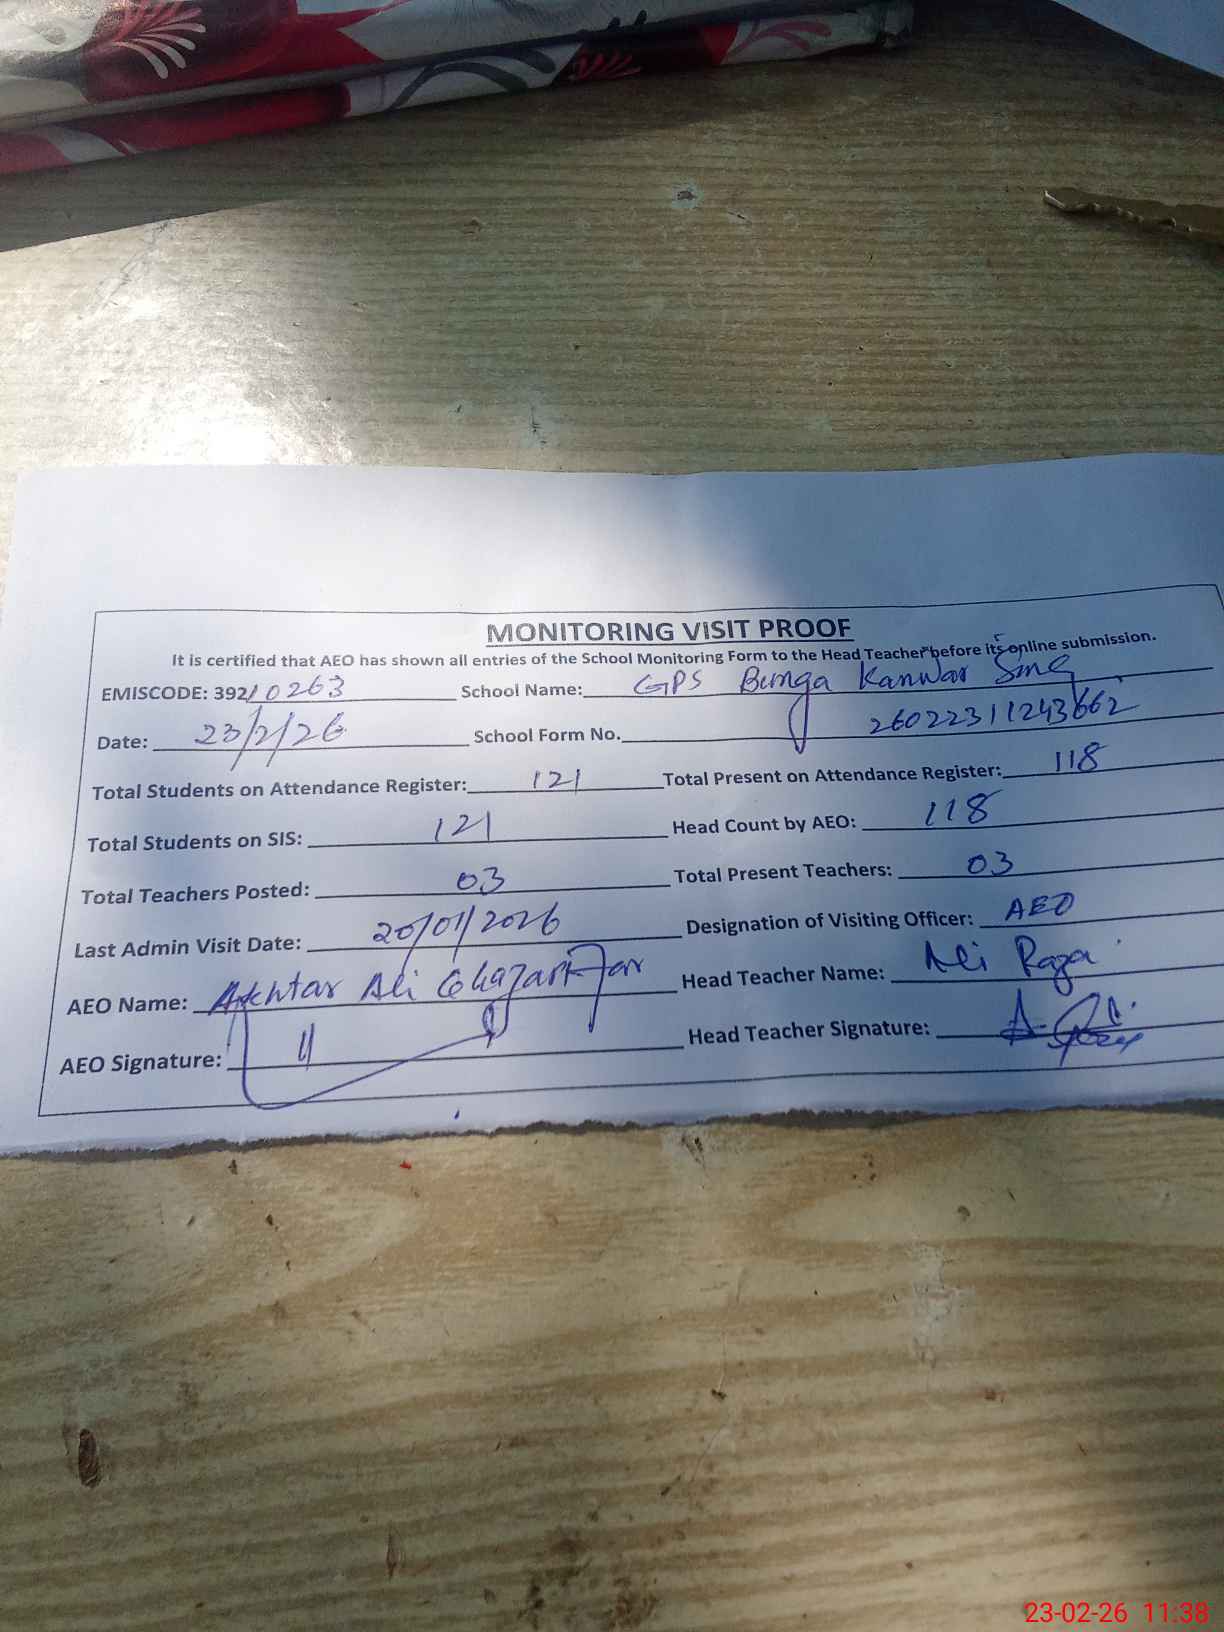 MONITORING VISIT PROOF
It is certified that AEO has shown all entries of the School Monitoring Form to the Head Teacher before its online submission.
EMISCODE: 392/10263 School Name: GPS Bunga Kanwar Sing
Date: 23/2/26 School Form No. 26022311243662
Total Students on Attendance Register: 121 Total Present on Attendance Register: 118
Total Students on SIS: 121 Head Count by AEO: 118
Total Teachers Posted: 03 Total Present Teachers: 03
Last Admin Visit Date: 20/01/2026 Designation of Visiting Officer: AEO
AEO Name: Akhtar Ali Head Teacher Name: Ali Raza
AEO Signature: Head Teacher Signature:
23-02-26 11:38